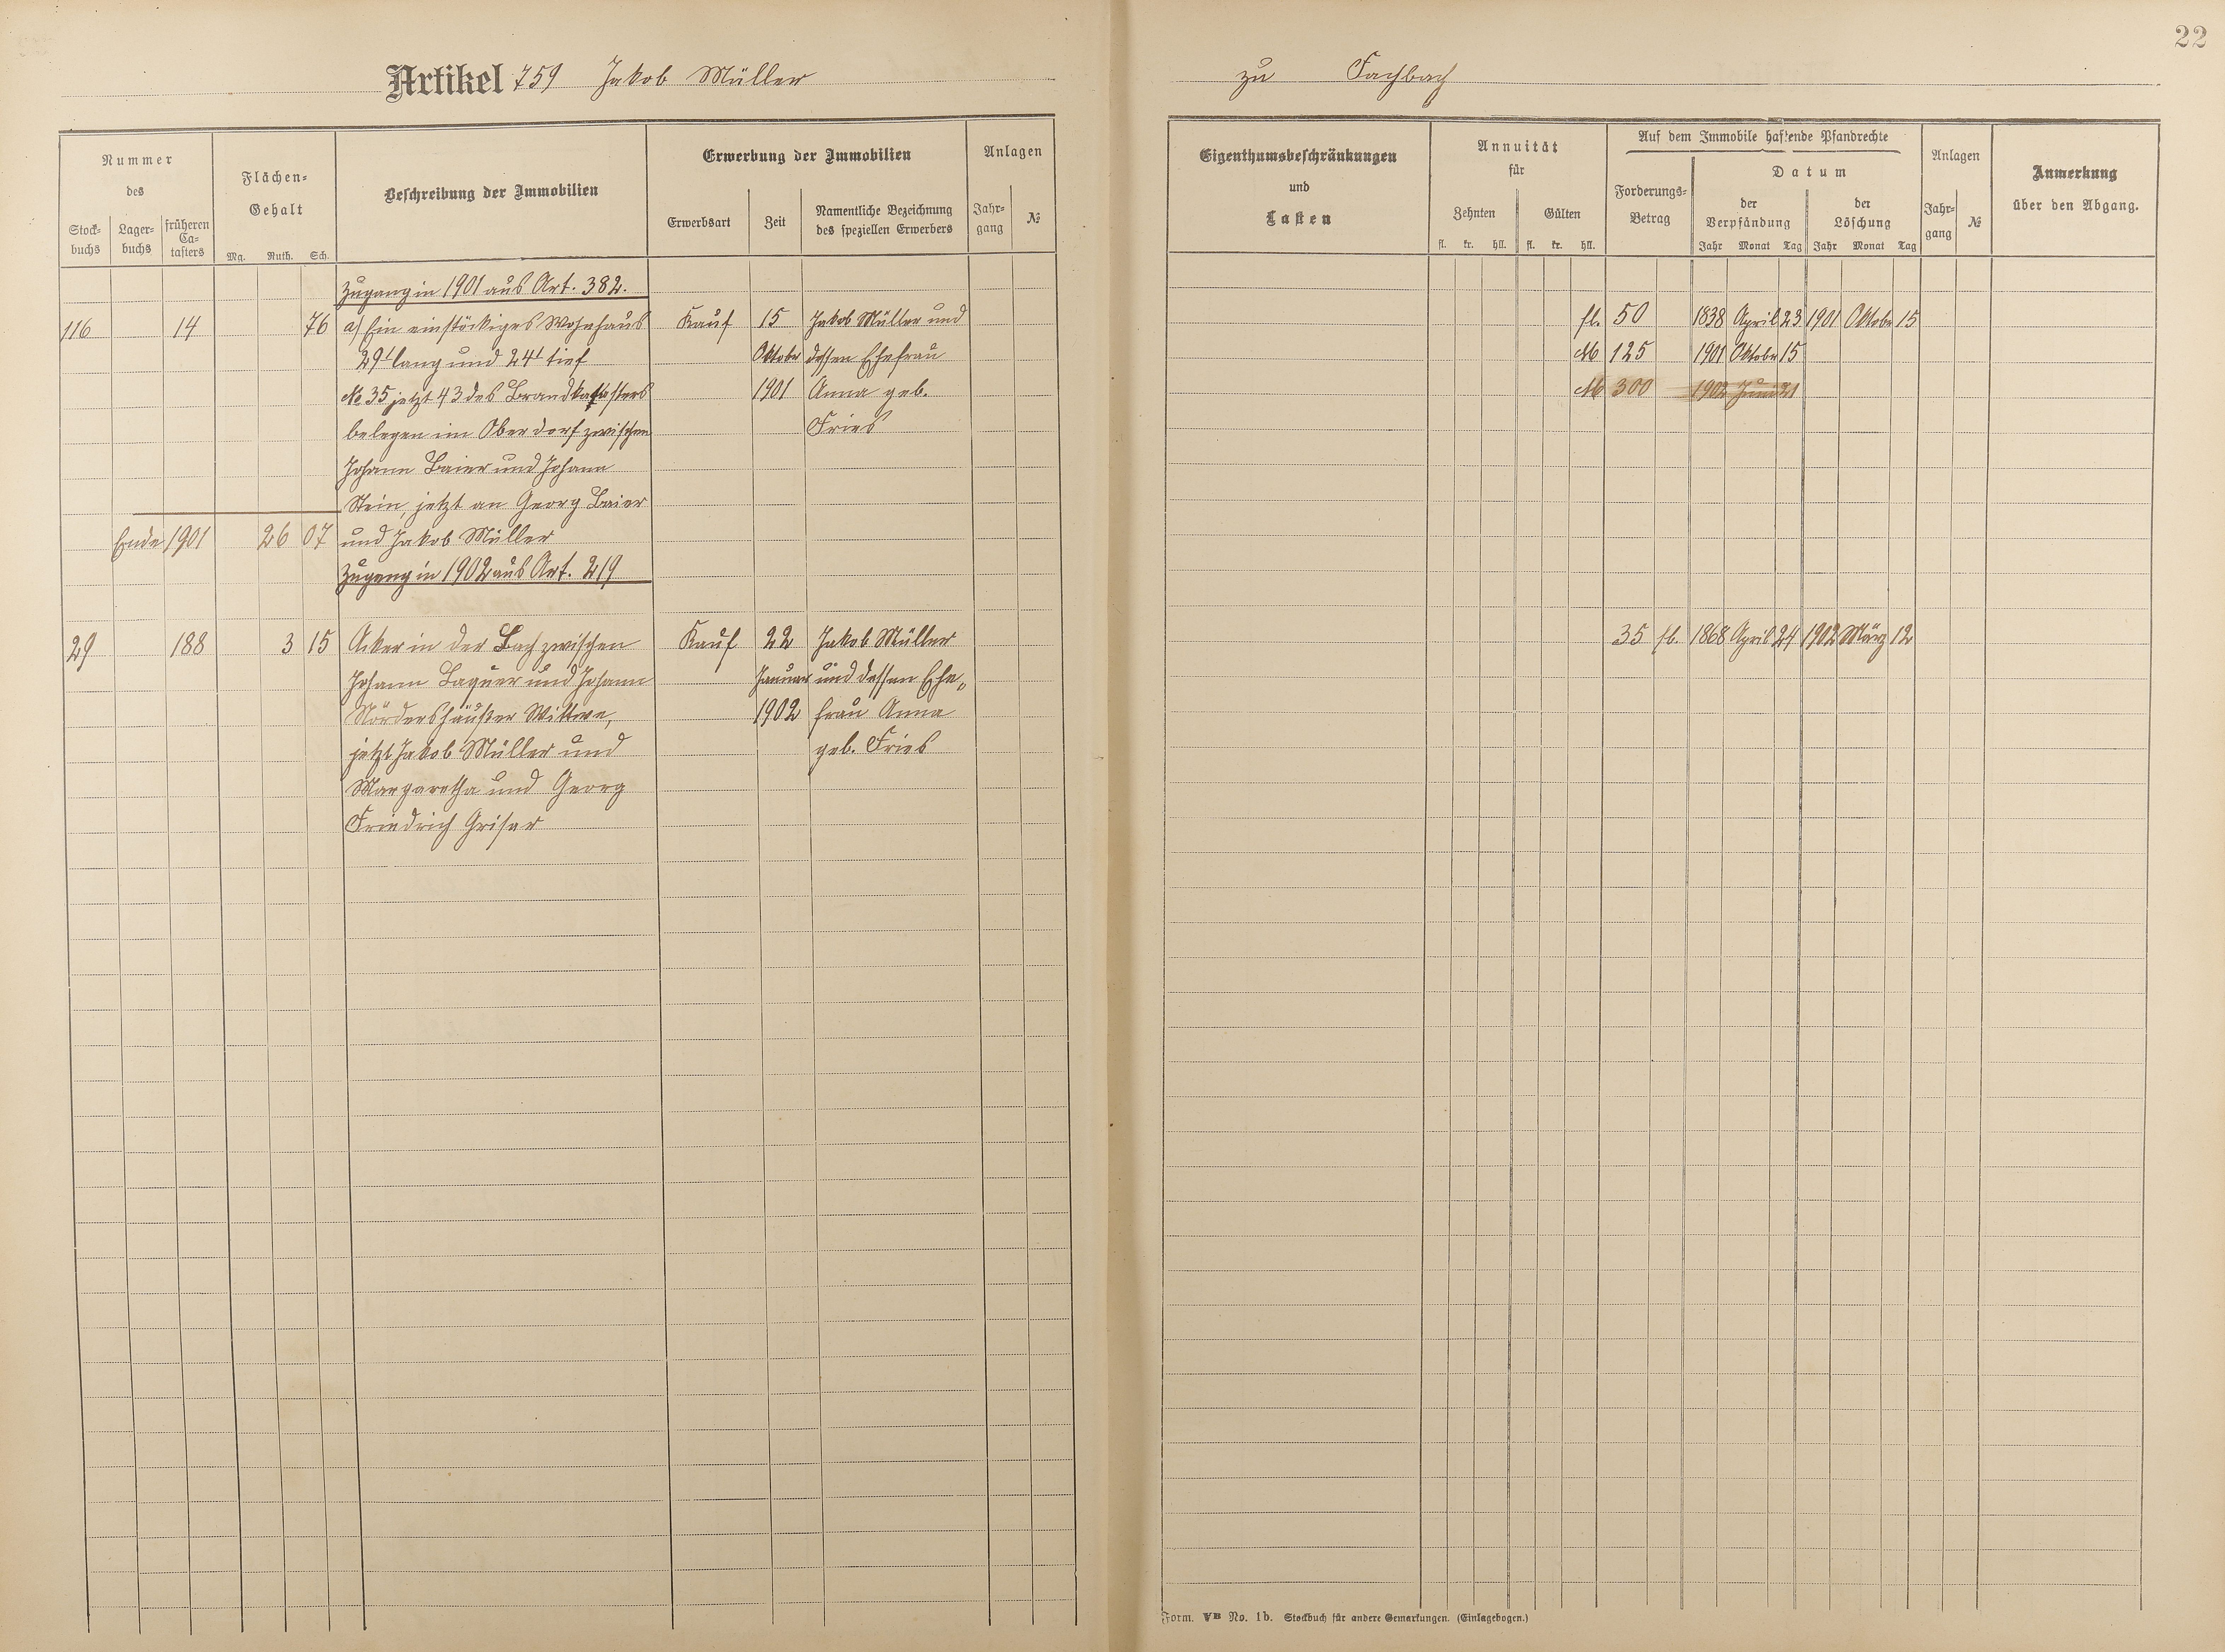 22
Artikel 759 Jakob Müller
zu Fachbach
Nummer
des
Stock-
buchs
Lager-
buchs
früheren
Ca-
tasters
Flächen-
Gehalt
Mg. Ruth. Sch.
Beschreibung der Immobilien
Erwerbung der Immobilien
Erwerbsart
Zeit
Namentliche Bezeichnung
des speziellen Erwerbers
Anlagen
Jahr-
gang
№
Zugang in 1901 aus Art. 382.
116 14 76 a) Ein einstöckiges Wohnhaus Kauf 15 Jakob Müller und
29' lang und 24' tief Oktober dessen Ehefrau
№ 35 jetzt 43 des Brandkatasters 1901 Anna geb.
belegen im Oberdorf zwischen Fries
Johann Baier und Johann
Stein, jetzt an Georg Baier
Ende 1901 26 07 und Jakob Müller
Zugang in 1902 aus Art. 219
29 188 3 15 Acker in der Bach zwischen Kauf 22 Jakob Müller
Johann und Johann Januar und dessen Ehe„
Nördershäußer Wittwe, 1902 frau Anna
jetzt Jakob Müller und geb. Fries
Margaretha und Georg
Friedrich Grisar
Eigenthumsbeschränkungen
und
Lasten
Annuität
für
Zehnten
fl. kr. hll.
Gülten
fl. kr. hll.
Auf dem Immobile haftende Pfandrechte
Forderungs-
Betrag
Datum
der
Verpfändung
Jahr Monat Tag
der
Löschung
Jahr Monat Tag
Anlagen
Jahr-
gang
№
Anmerkung
über den Abgang.
fl. 50 1838 April 23 1901 Oktobr 15
M 125 1901 Oktobr 15
M 300 1902 Juni 21
35 fl. 1868 April 24 1902 März 12
Form. VB No. 1b. Stockbuch für andere Gemarkungen. (Einlagebogen.)